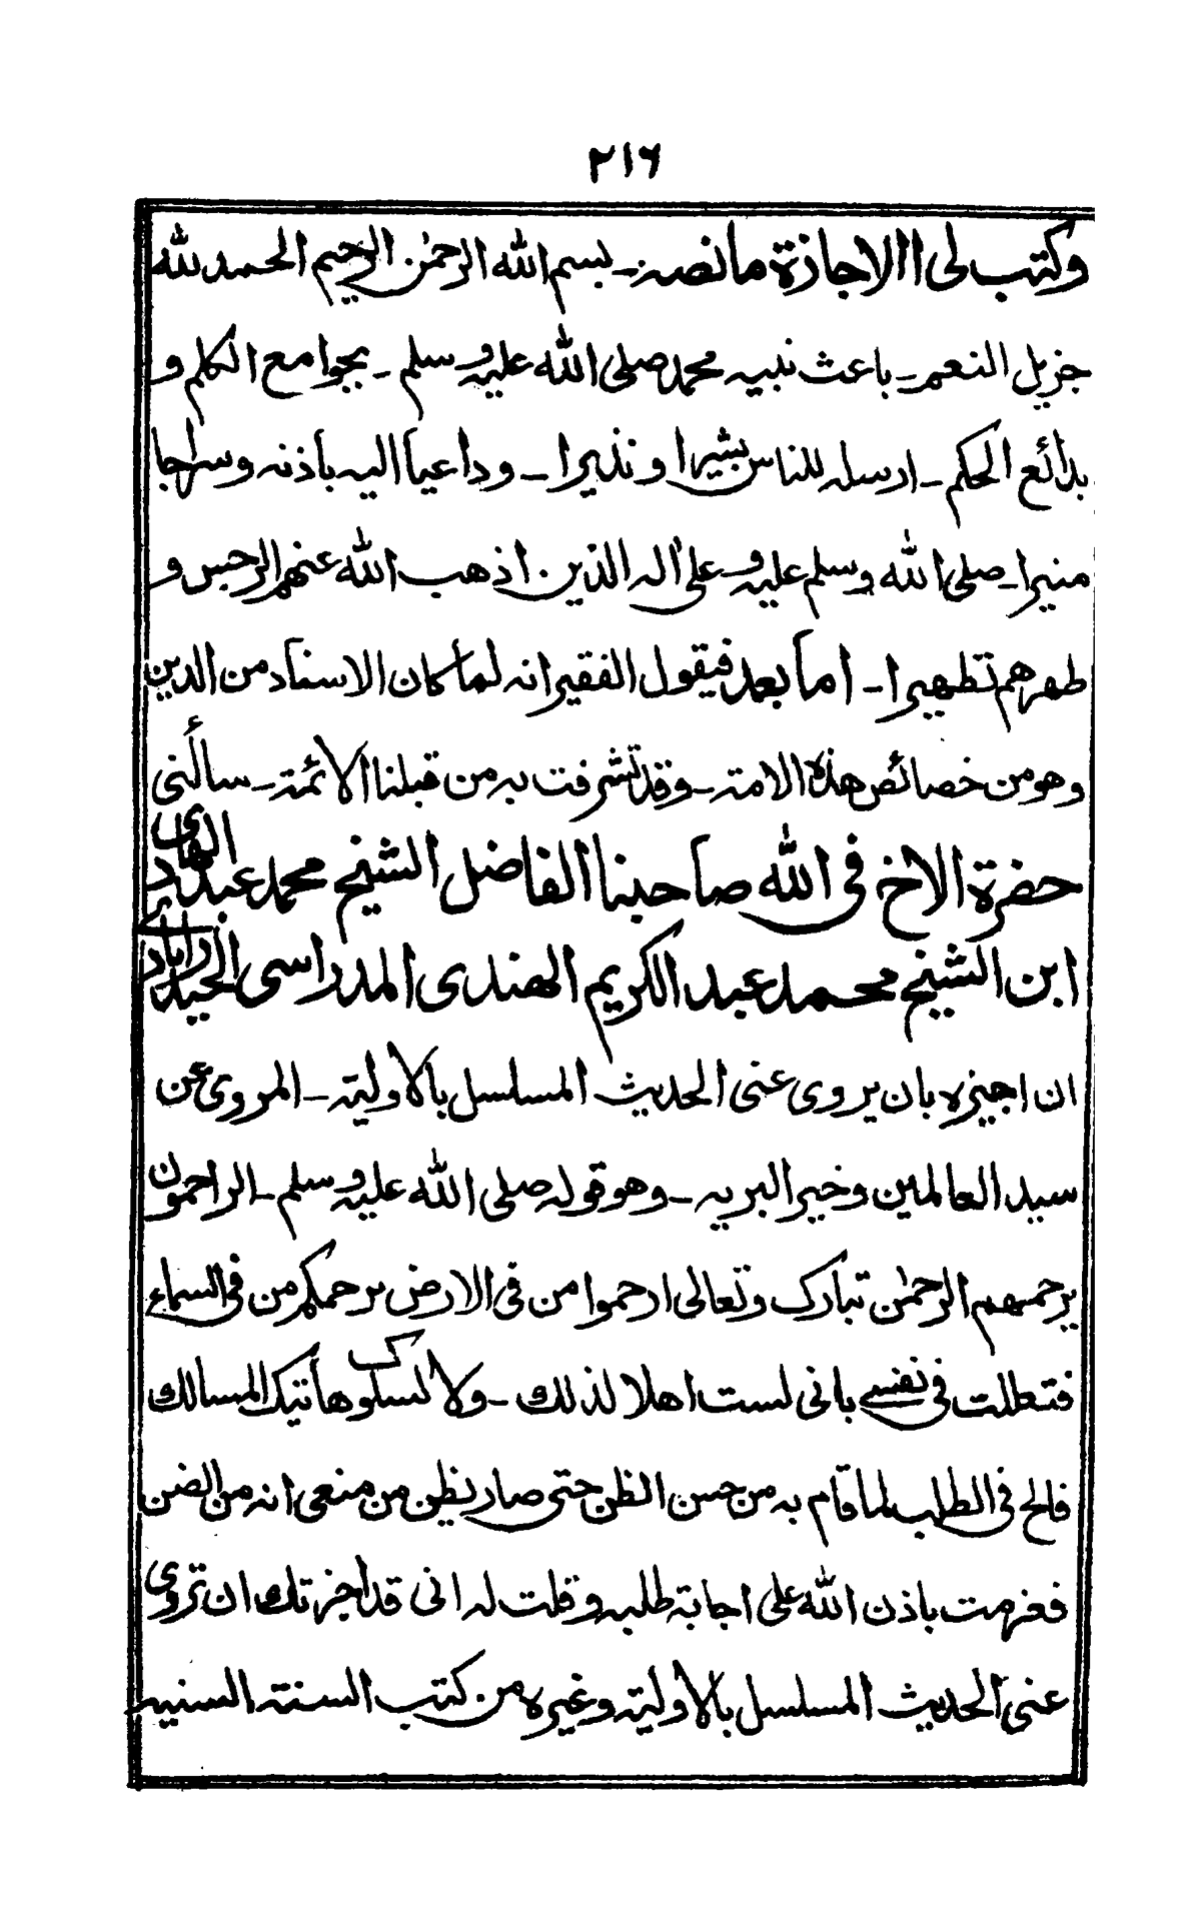 ٢١٦
وكتب لى الاجازة مانصه ـ بسم الله الرحمٰن الرحيم الحمد لله
جزيل النعم ـ باعث نبيه محمد صلى الله عليه وسلم ـ بجوامع الكلم و
بدائع الحكم ـ ارسله للناس بشيرا ونذيرا ـ وداعيا اليه باذنه وسراجا
منيرا ـ صلى الله وسلم عليه وعلى اله الذين اذهب الله عنهم الرجس و
طهرهم تطهيرا ـ اما بعد فيقول الفقير انه لما كان الاسناد من الدين
وهو من خصائص هذه الامة ـ وقد تشرفت به من قبلنا الائمة ـ سألنى
حضرة الاخ فى الله صاحبنا الفاضل الشيخ محمد عبد الهادى
ابن الشيخ محمد عبد الكريم الهندى المدراسى الحيدرابادى
ان اجيزه بان يروى عنى الحديث المسلسل بالاولية ـ المروى عن
سيد العالمين وخير البريه ـ وهو قوله صلى الله عليه وسلم ـ الراحمون
يرحمهم الرحمٰن تبارك وتعالى ارحموا من فى الارض يرحمكم من فى السماء
فتعللت فى نفسى بانى لست اهلا لذلك ـ ولا لسلوك هاتيك المسالك
فالح فى الطلب لما قام به من حسن الظن حتى صار يظن من منعى انه من الضن
فعزمت باذن الله على اجابة طلبه وقلت له انى قد اجزتك ان تروى
عنى الحديث المسلسل بالاولية وغيره من كتب السنة السنيه